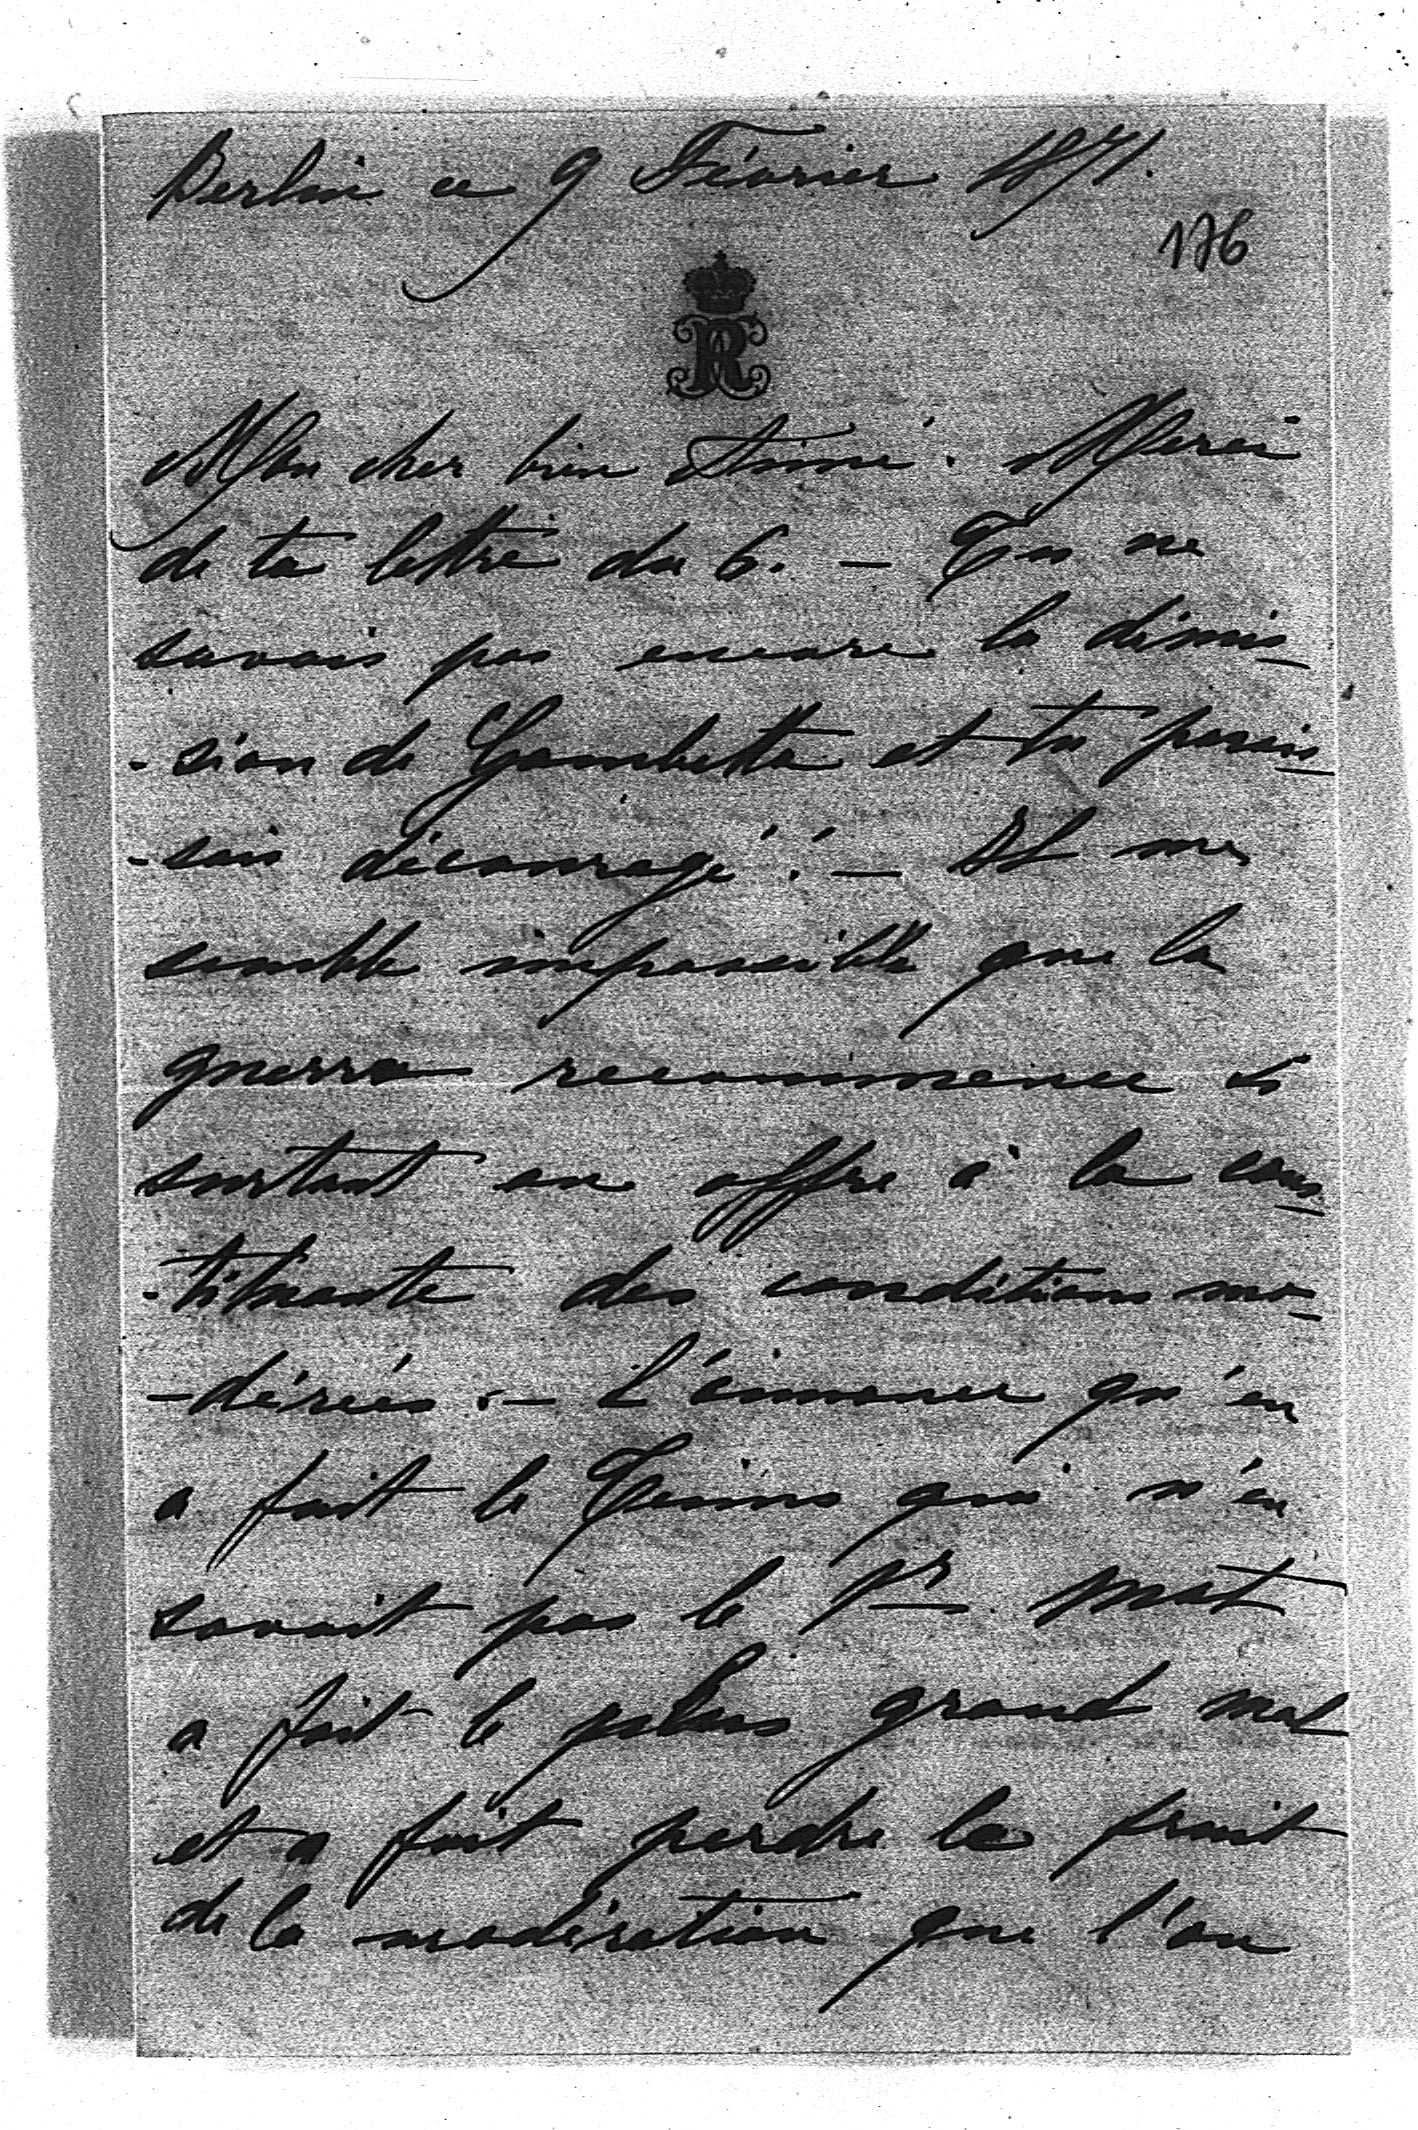 Berlin ce 9 Février 1871.
176
R
Mon cher bien Aimé. Merci
de ta lettre du 6. — Tu ne
savais pas encore la démis
-sion de Gambetta et tu parais
-sais découragé! — Il me
semble impossible que la
guerre recommence si
surtout on offre à la cons
-tituante des conditions mo
-dérées. — L'annonce qu'en
a fait le Times qui n'en
savait pas le 1r mot
a fait le plus grand mal
et a fait perdre le fruit
de la modération que l'on